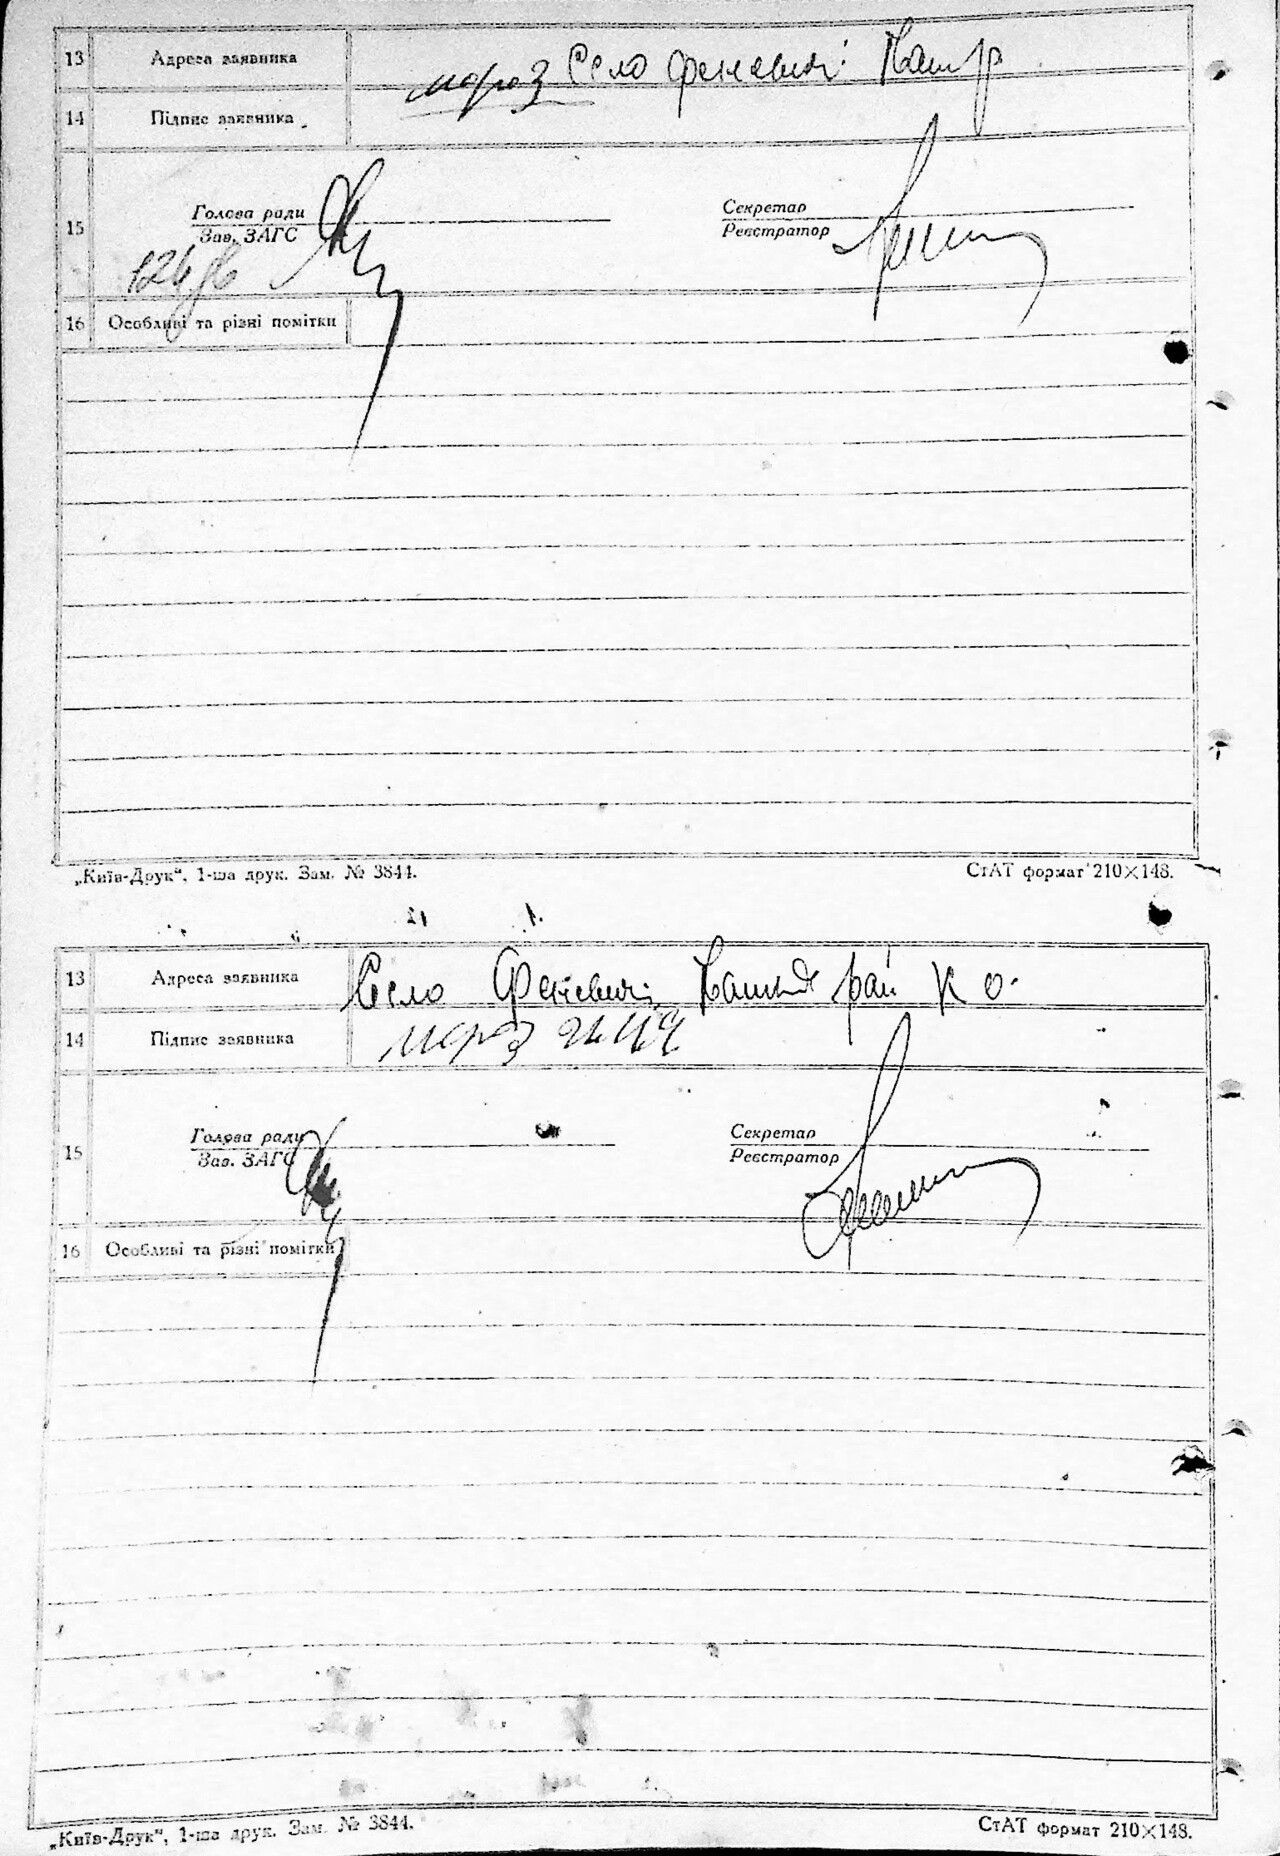 13 Адреса заявника Село Феневичі Каш р
14 Підпис заявника мороз
15 Голова ради Секретар
Зав. ЗАГС Реєстратор
16 Особливі та різні помітки
„Київ-Друк“, 1-ша друк. Зам. № 3844. СтАТ формат 210×148.
13 Адреса заявника Село Феневичі рай К о.
14 Підпис заявника мороз
15 Голова ради Секретар
Зав. ЗАГС Реєстратор
16 Особливі та різні помітки
„Київ-Друк“, 1-ша друк. Зам. № 3844. СтАТ формат 210×148.